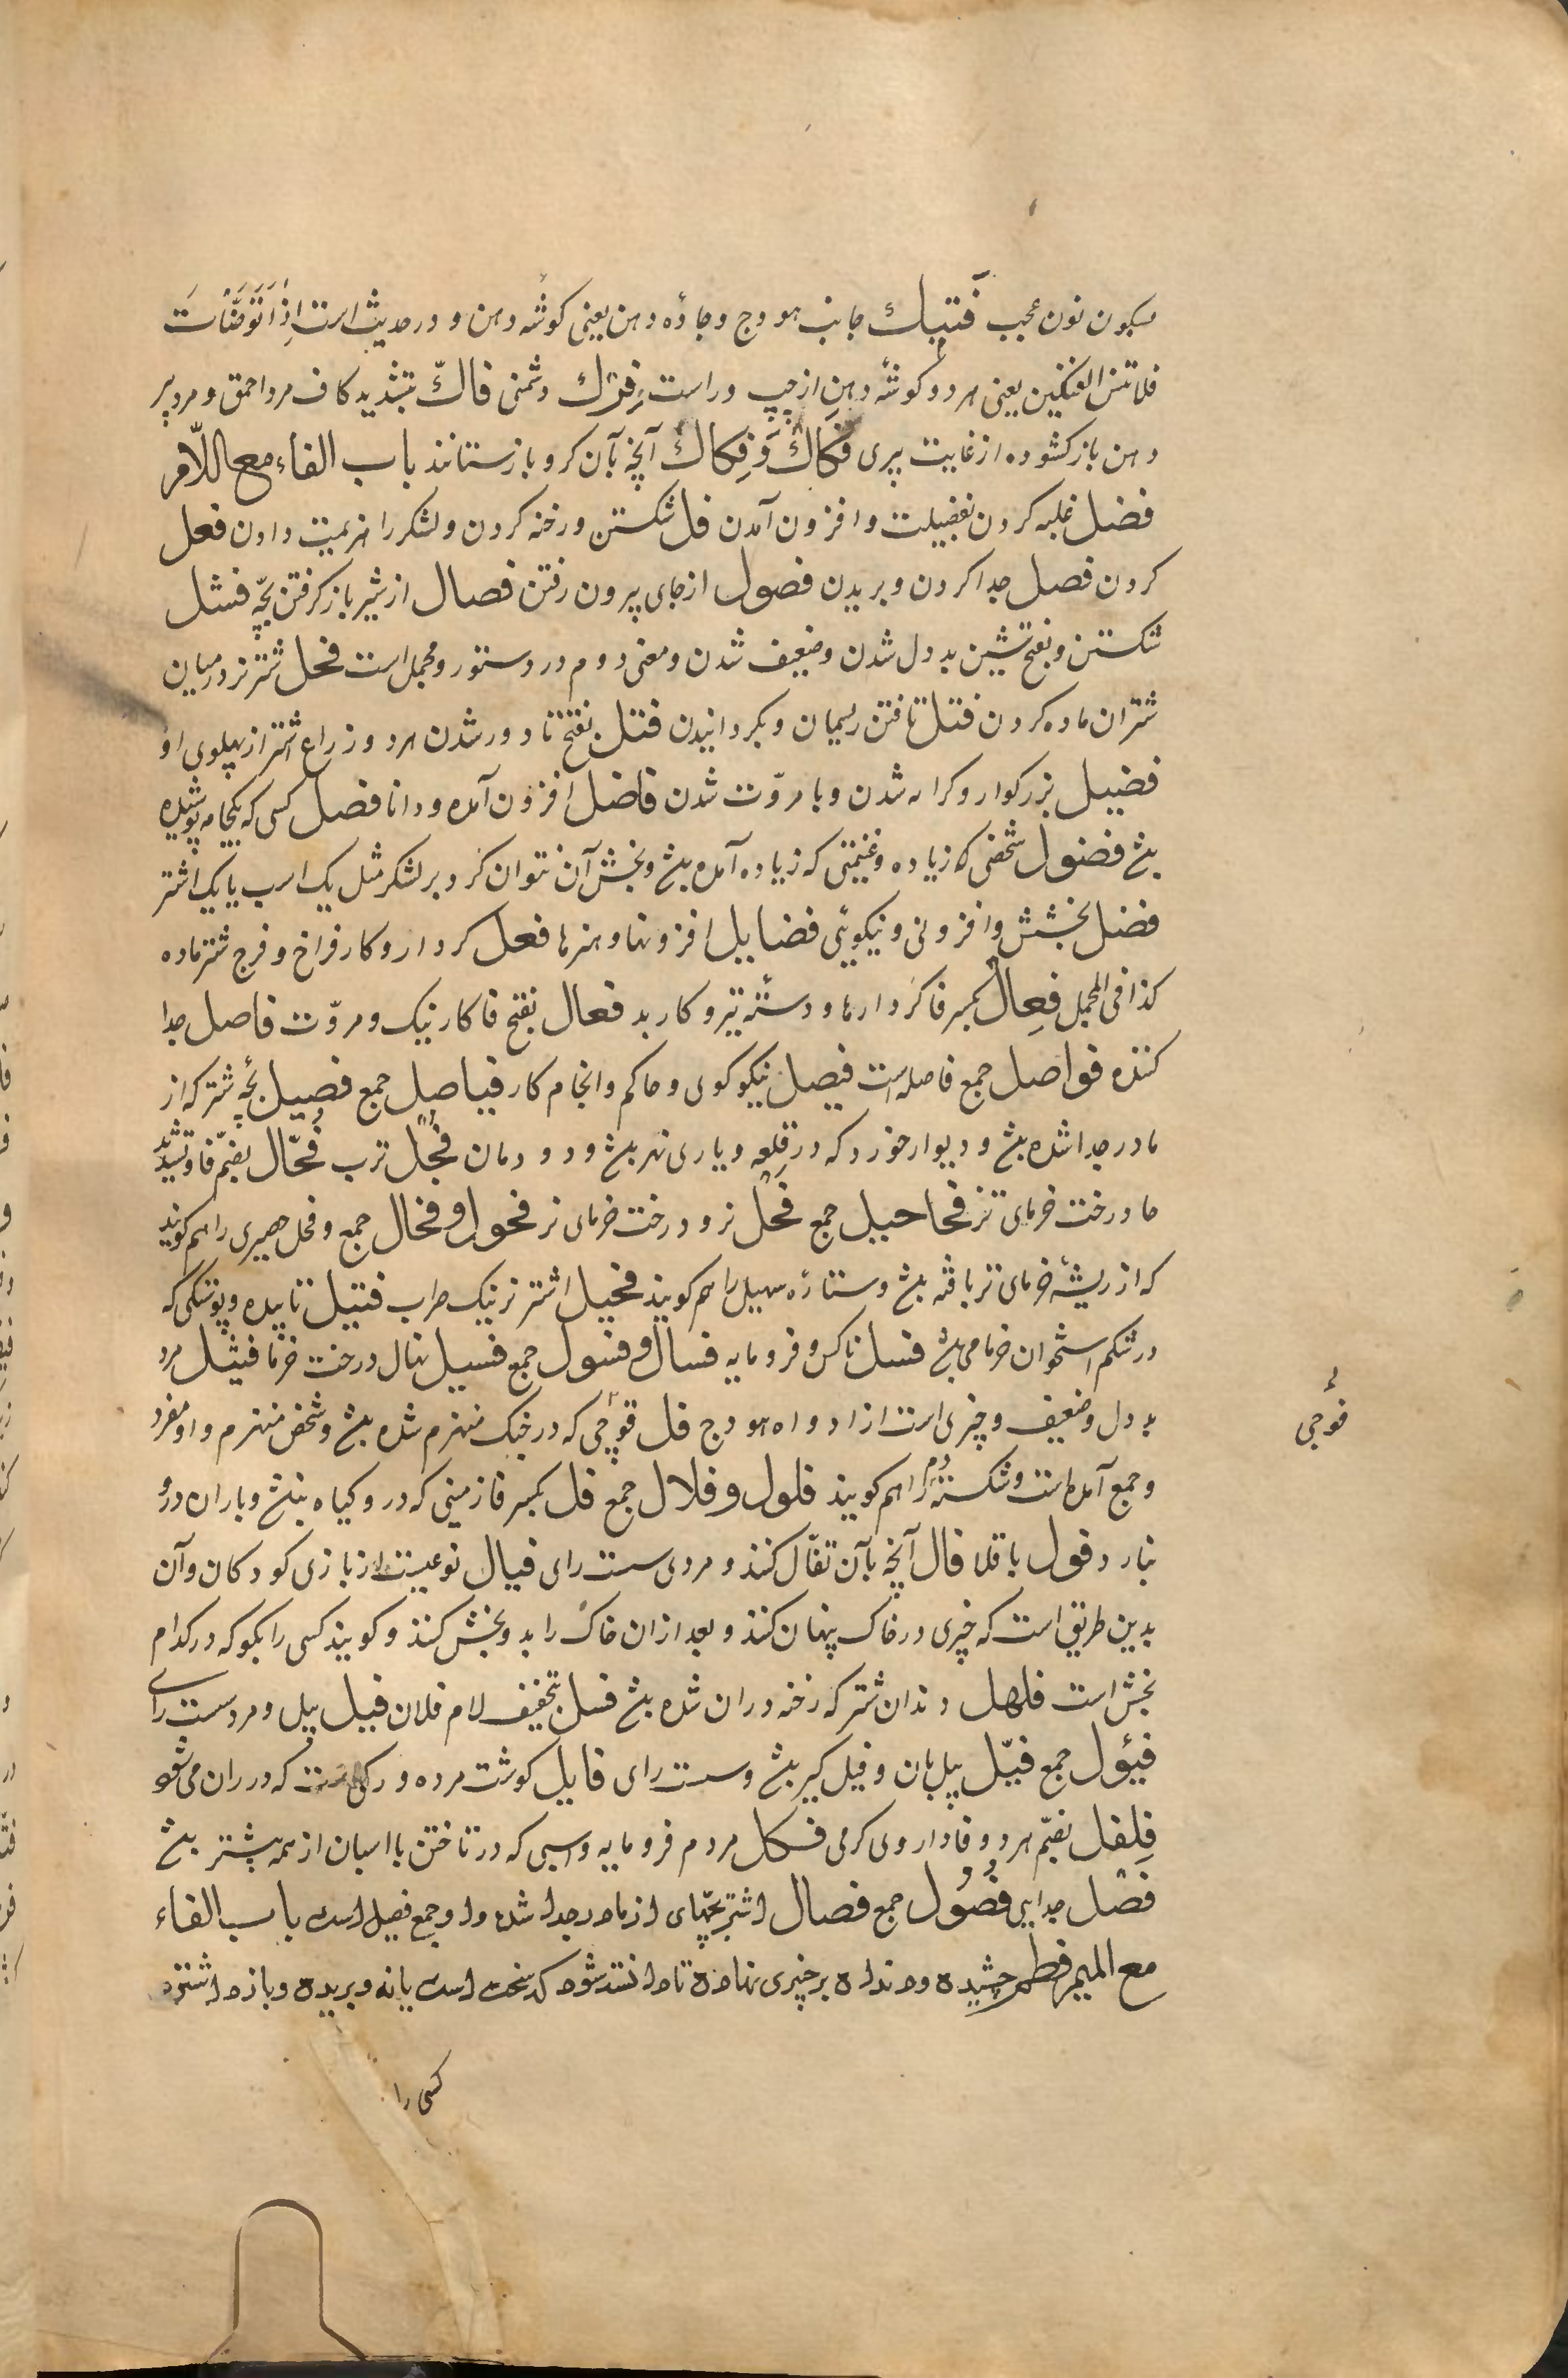 بسکون نون عجب فَنیك جانب هودج و جاده دهن یعنی کوشهٔ دهن و در حدیث است اِذَا تَوَضَّأتَ
فلا تنس الفنکین یعنی هر دو کوشهٔ دهن از چپ و راست فِرْك دشمنی فاكّ بتشدید کاف مرد احمق و مرد پیر
دهن باز کشوده از غایت پیری فَکاك وَ فِکاك آنچه بآن کرو باز ستانند باب الفاء مع اللّام
فضل غلبه کردن بفضیلت و افزون آمدن فل شکستن و رخنه کردن و لشکر را هزیمت دادن فعل
کردن فصل جدا کردن و بریدن فصول از جای بیرون رفتن فصال از شیر باز کرفتن بچّه فشل
شکستن و بفتح شین بد دل شدن و ضعیف شدن و معنی دوم در دستور و مجمل است فحل شتر نر در میان
شتران ماده کردن فتل تافتن ریسمان و بکردانیدن فتل بفتح تا دور شدن هر دو ذراع شتر از پهلوی او
فضیل بزرکوار و کرامه شدن و با مروّت شدن فاضل افزون آمده و دانا فضل کسی که یکجامه پوشیده
بشـ فضول شخصی که زیاده و غنیمتی که زیاده آمده بشـ و بخش آن نتوان کرد بر لشکر مثل یک اسب یا یک اشتر
فضل بخشش و افزونی و نیکویی فضایل افزونها و هنرها فعل کردار و کار فراخ و فرج شتر ماده
کذا فی المجمل فِعال بکسر فا کردارها و دستهٔ تیر و کار بد فعال بفتح فا کار نیک و مروّت فاصل جدا
کننده فواصل جمع فاصله است فیصل نیکو کوی و حاکم و انجام کار فیاصل جمع فصیل بچهٔ شتر که از
مادر جدا شده بشـ و دیوار خورد که در قلعه و یاری نهر بشـ و دودمان فجل ترب فُحّال بضمّ فا و تشدید
حا درخت خرمای نر فحاحیل جمع فحل نر و درخت خرمای نر فحول و فحال جمع و فحل حصیری را هم کویند
که از ریشهٔ خرمای نر بافته بشـ و ستاره سهیل را هم کویند فحیل اشتر نر نیک ضراب فتیل تابیده و پوستکی که
در شکم استخوان خرما می بشـ فسل ناکس و فرومایه فسال و فسول جمع فسیل نهال درخت خرما فشل مرد
بد دل و ضعیف و چیزی است از ادواه هودج فل قوجی که در جنک منهزم شده بشـ و شخص منهزم و او مفرد
فوجی
و جمع آمده است و شکستهٔ دم را هم کویند فلول و فلال جمع فل بکسر فا زمینی که درو کیاه نبشـ و باران درو
نبارد فول باقلا فال آنچه بآن تفأّل کنند و مردی سست رای فیال نوعیست از بازی کودکان و آن
بدین طریق است که چیزی در خاک پنهان کنند و بعد از آن خاک را بدو بخش کنند و کویند کسی را بکو که در کدام
بخش است فلهل دندان شتر که رخنه در آن شده بشـ فل بتخفیف لام فلان فیل پیل و مرد سست رای
فیئول جمع فیّل پیل بان و فیل کیر بشـ و سست رای فایل کوشت مرده و رکی است که در ران می شو
فلفل بضمّ هر دو فا داروی کرمی فسکل مردم فرومایه و اسبی که در تاختن با اسبان از همه پیشتر بشـ
فصل جدایی فُصُول جمع فصال اشتر بچّهای از مادر جدا شده و او جمع فصیل است باب الفاء
مع المیم فطم چشیده و دندان بر چیزی نهاده تا دانسته شود که سخت است یا نه و بریده و بازداشتن
کسی را